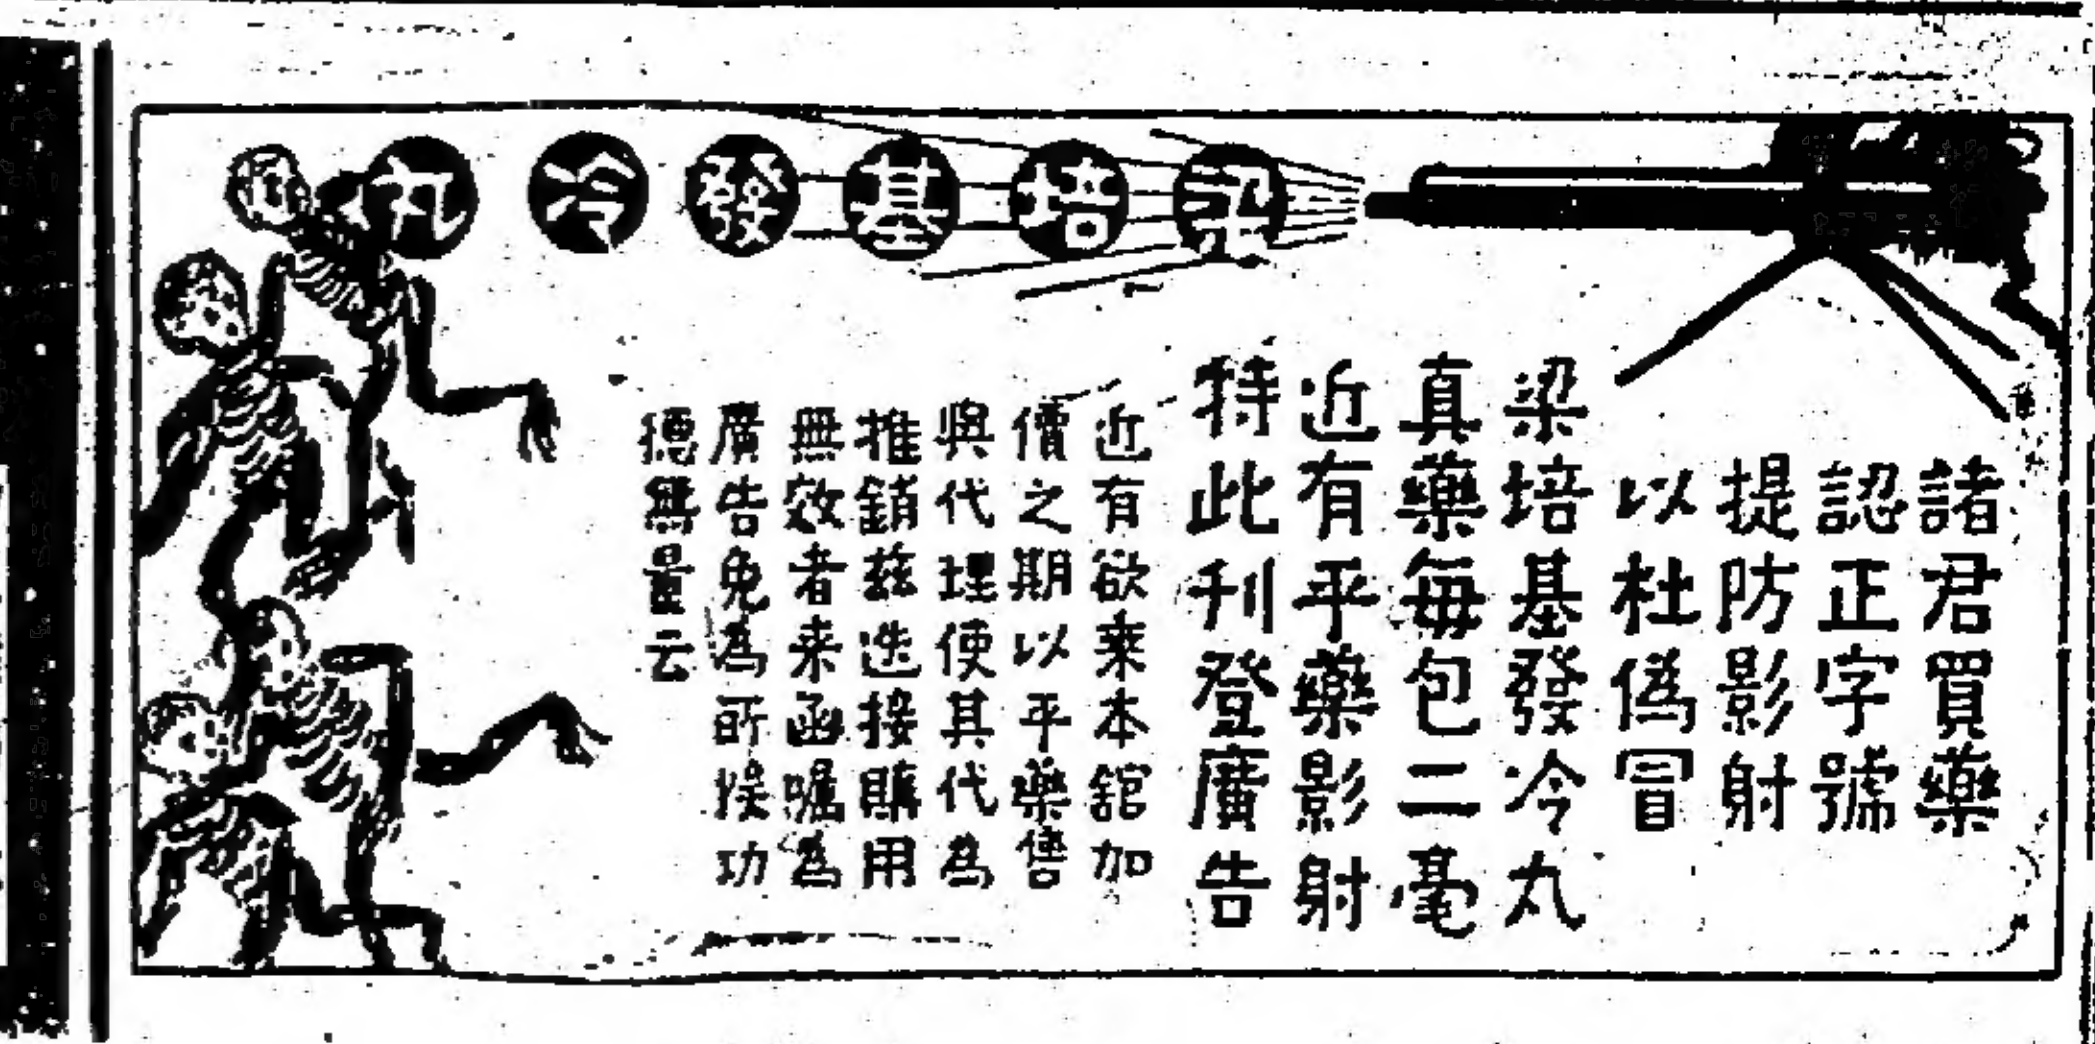 梁培基發冷丸
諸君買藥
認正字號
提防影射
以杜偽冒
梁培基發冷丸
真藥每包二毫
近有平藥影射
特此刊登廣告
近有欲乘本舘加
價之期以平藥售
與代理使其代為
推銷茲迭接購用
無效者来函囑為
廣告免為所悞功
德無量云